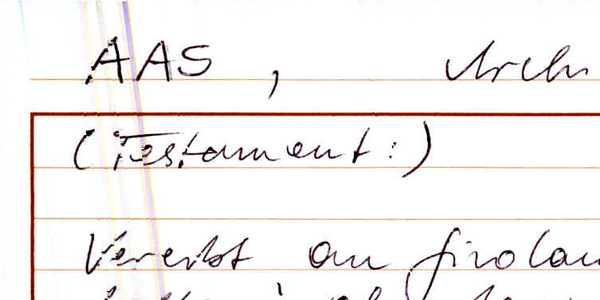 AAS, Arch
(Testament:)
Vererbt an Girolam